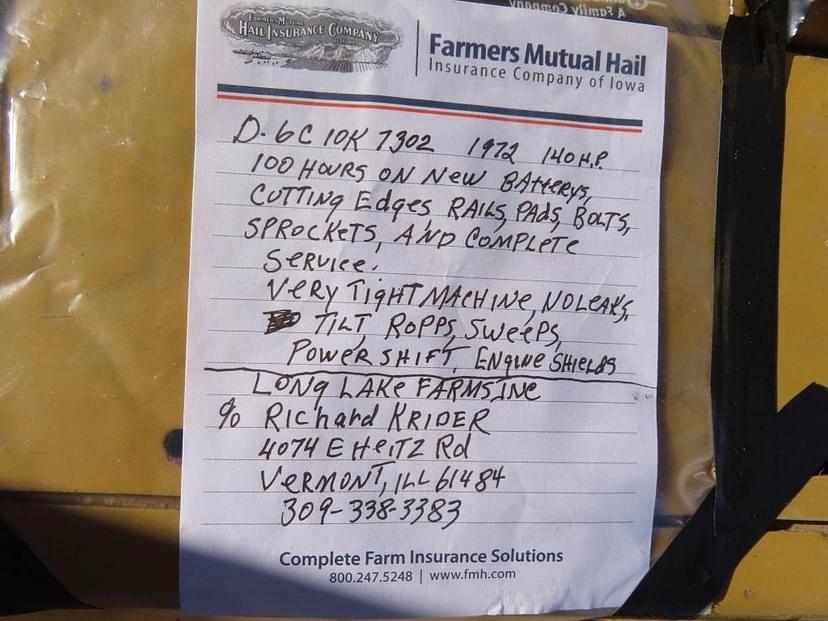 A Family Company
FARMERS MUTUAL
HAIL INSURANCE COMPANY
Farmers Mutual Hail
Insurance Company of Iowa
D-6C 10K 7302 1972 140 H.P.
100 HOURS ON NEW BATTERYS,
CUTTING EdgES, RAILS, PAdS, BOLTS,
SPROCKETS, AND COMPLETE
SERVICE.
VERY TIGHT MACHINE, NO LEAKS,
TILT ROPPS, SWEEPS,
POWER SHIFT, ENGINE SHIELDS
LONG LAKE FARMS INC
% RIChard KRIDER
4074 E HEITZ Rd
VERMONT, ILL 61484
309-338-3383
Complete Farm Insurance Solutions
800.247.5248 | www.fmh.com